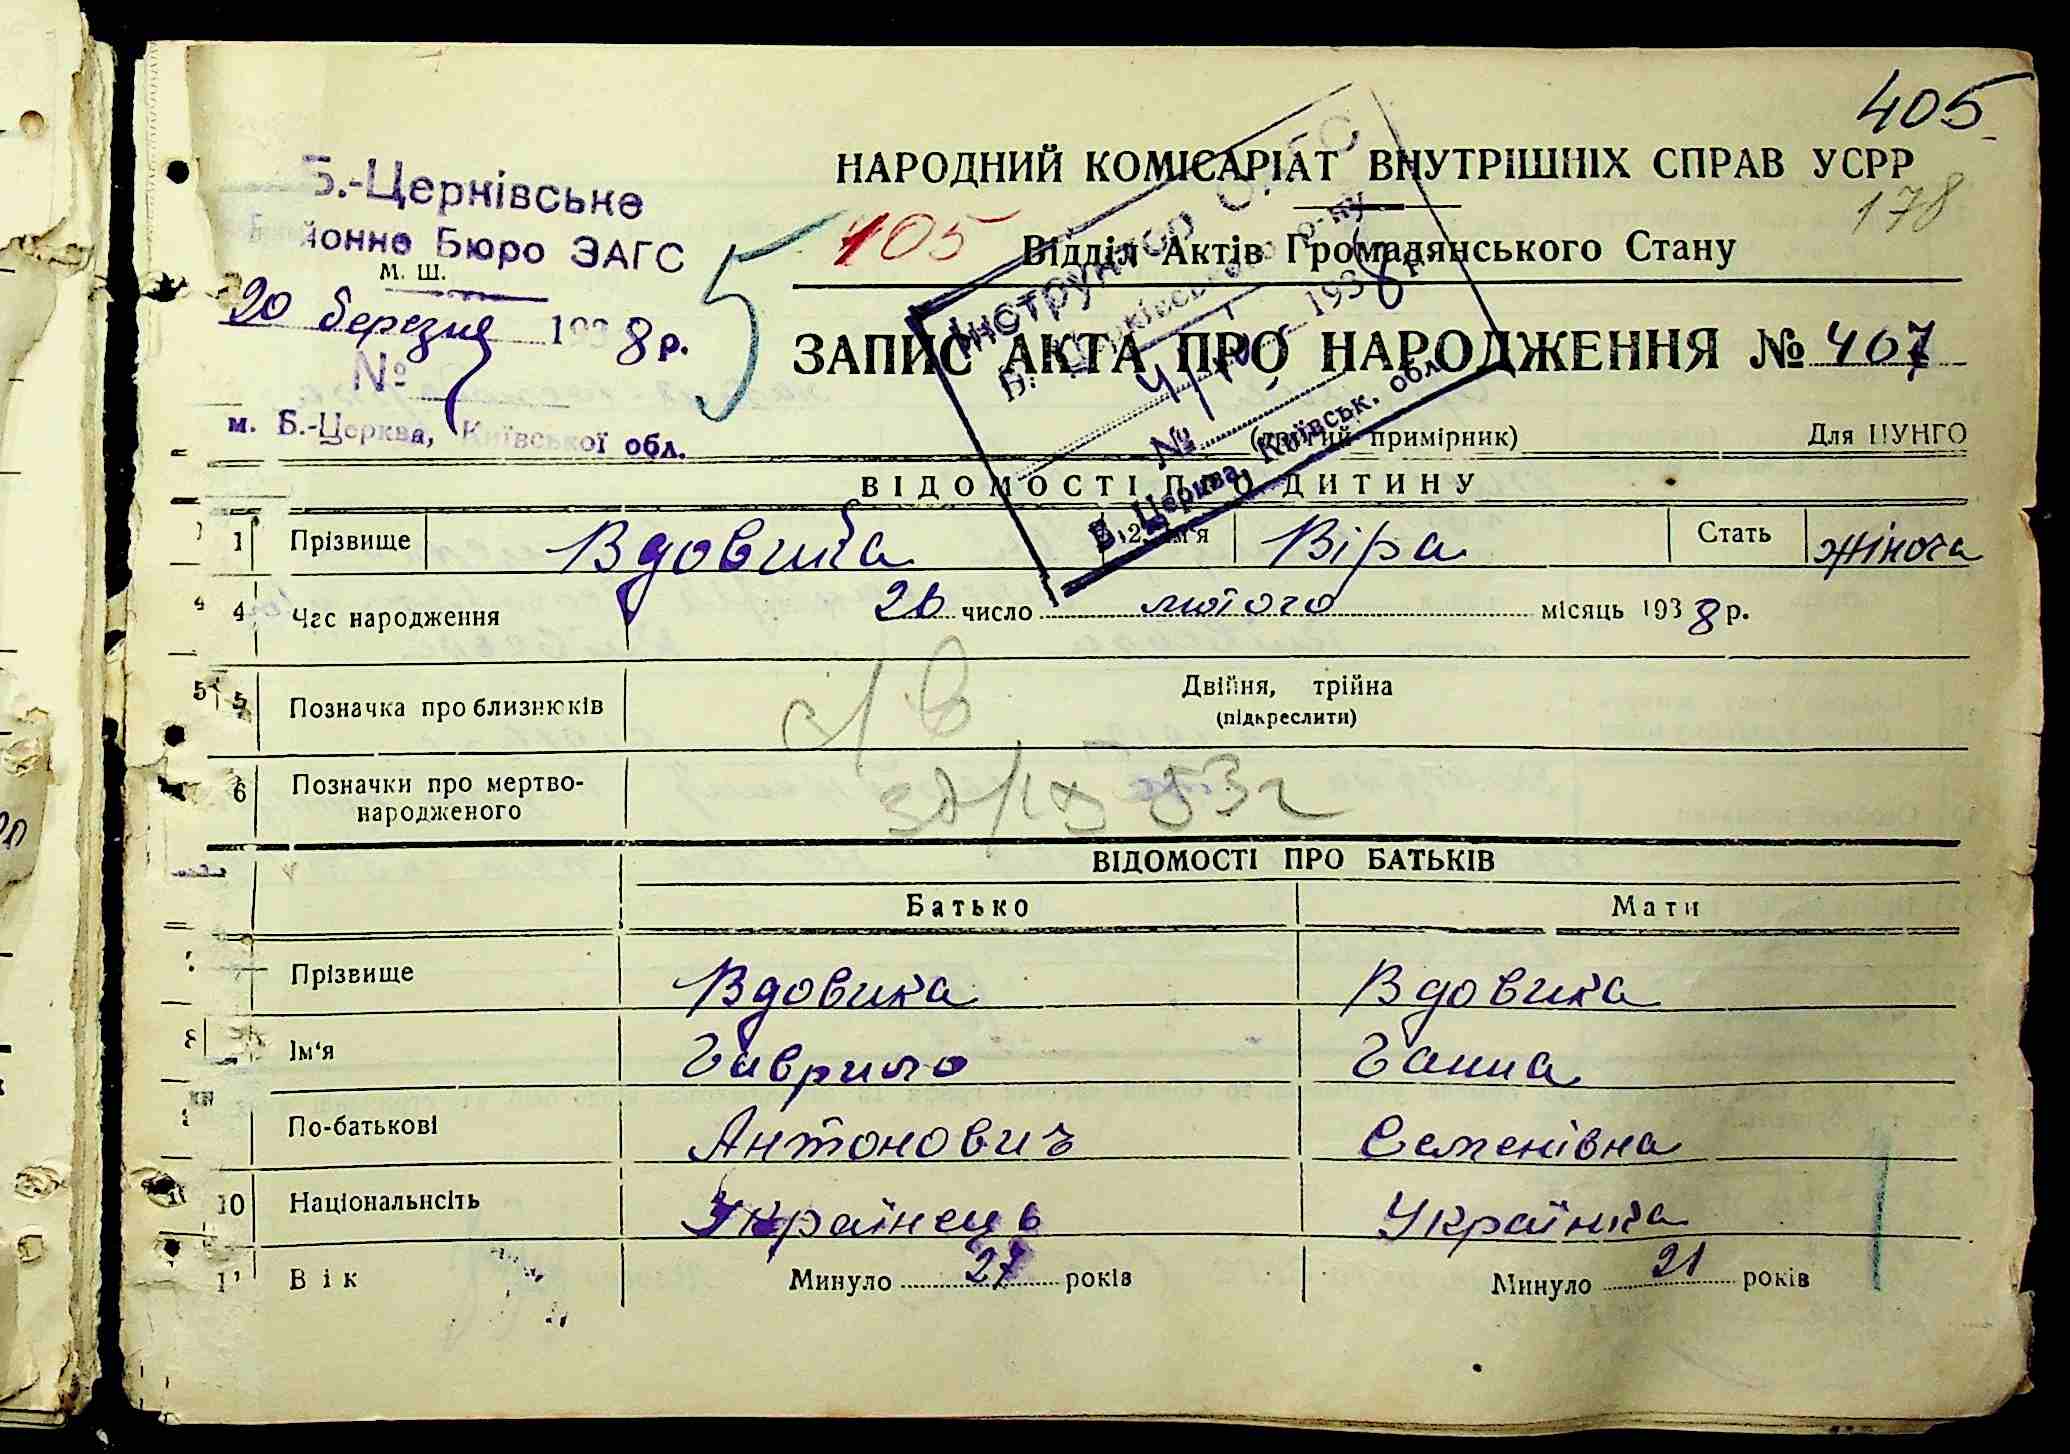 405
НАРОДНИЙ КОМІСАРІАТ ВНУТРІШНІХ СПРАВ УСРР
178
Б.-Церківське
йонне Бюро ЗАГС
405
Відділ Актів Громадянського Стану
М. Ш.
20 березня 1938 р.
5
ЗАПИС АКТА ПРО НАРОДЖЕННЯ № 407
№
м. Б.-Церква, Київської обл.
(другий примірник)
Для ЦУНГО
Інструктор ОАГС
Б. Церківського р-ну
1938 р.
№
Б. Церква, Київськ. обл.
ВІДОМОСТІ ПРО ДИТИНУ
1 Прізвище Вдовика 2. Ім'я Віра Стать жіноча
4 4 Час народження 26 число лютого місяць 1938 р.
5 5 Позначка про близнюків Двійня, трійна
(підкреслити)
6 Позначки про мертво-
народженого
53 г
ВІДОМОСТІ ПРО БАТЬКІВ
Батько Мати
Прізвище Вдовика Вдовика
8 Ім'я Гаврило Ганна
По-батькові Антонович Семенівна
10 Національнсіть Українець Українка
Вік Минуло 27 років Минуло 21 років